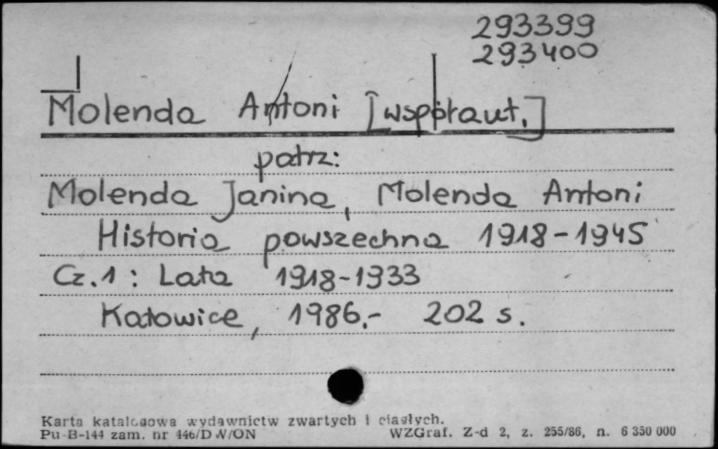 293399
293400
Molenda Antoni [współaut.]
patrz:
Molenda Janina, Molenda Antoni
Historia powszechna 1918-1945
Cz.1: Lata 1918-1933
Katowice, 1986.- 202 s.
Karta katalogowa wydawnictw zwartych i ciągłych.
Pu-B-144 zam. nr 446/DW/ON WZGraf. Z-d 2, z. 255/86, n. 6 350 000